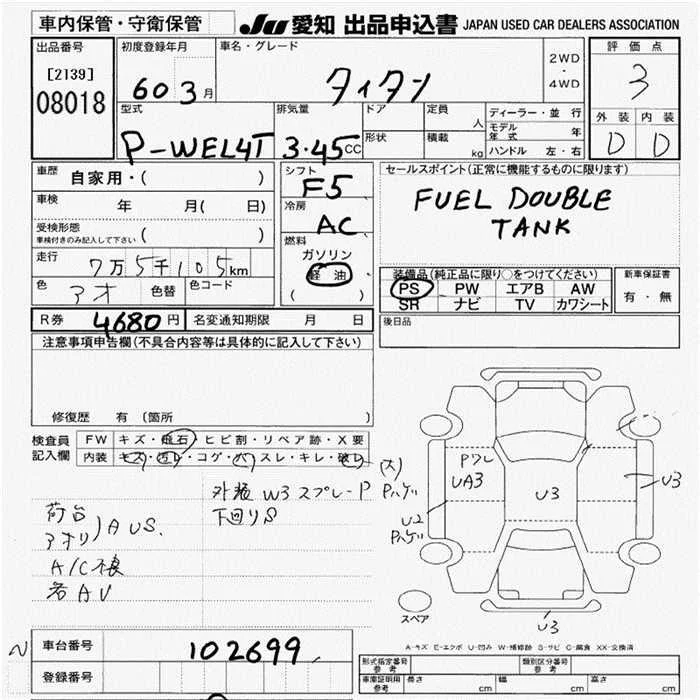 車内保管・守衛保管
JU 愛知 出品申込書 JAPAN USED CAR DEALERS ASSOCIATION
出品番号 初度登録年月 車名・グレード 2WD・4WD 評価点
[2139] 60 3月 タイタン 3
08018
型式 排気量 ドア 定員 人 ディーラー・並行 外装 内装
P-WEL4T 3.45CC 形状 積載 kg モデル年式 年 D D
ハンドル 左・右
車歴 自家用・( ) シフト F5 セールスポイント(正常に機能するものに限ります)
車検 年 月( 日) 冷房 AC FUEL DOUBLE
TANK
受検形態 ( )
車検付きのみ記入して下さい
燃料 ガソリン
軽油
( )
走行 7万5千105km
装備品(純正品に限り○をつけてください) 新車保証書
PS PW エアB AW 有・無
SR ナビ TV カワシート
色 アオ 色替 色コード
R券 4680円 名変通知期限 月 日 後日品
注意事項申告欄(不具合内容等は具体的に記入して下さい)
修復歴 有 (箇所 )
検査員 FW キズ・飛石・ヒビ割・リペア跡・X要
記入欄 内装 キズ・汚レ・コゲ・穴・スレ・キレ・破レ
(大)
Pハゲ
外装 W3 スプレーP
下回りS
荷台
アオリ AUS.
A/C不良
各AU
Pワレ
UA3
U3
U3
U2
Pハゲ
U3
スペア
A-キズ E-エクボ U-凹み W-補修跡 S-サビ C-腐食 XX-交換済
N 車台番号 102699
登録番号
型式指定番号 参考 類別区分番号 参考
車庫証明用 参考 長さ cm 幅 cm 高さ cm